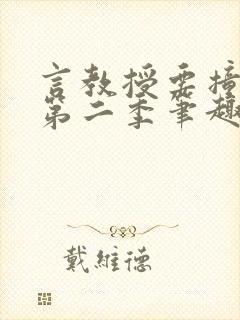 言教授要撞
第二季笔趣
戴維德